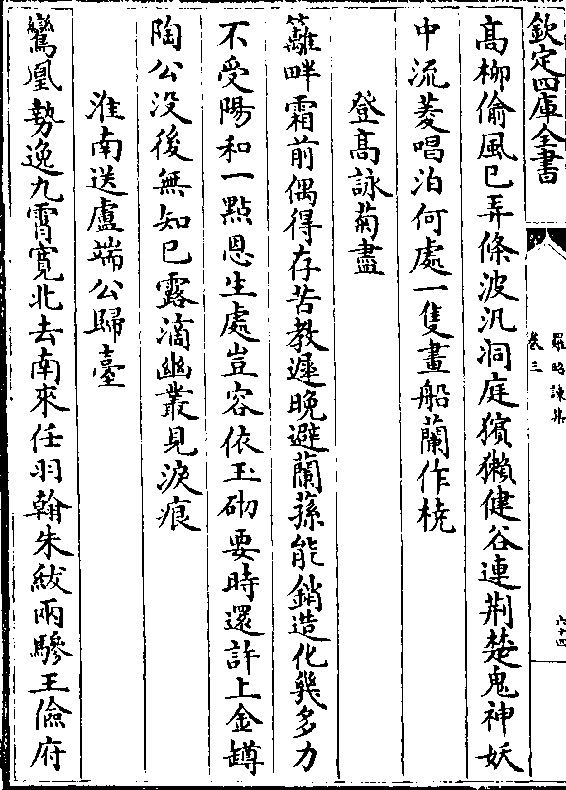 欽定四庫全書
羅昭諫集
卷三
六十四
高柳偷風已弄條波汎洞庭獱獺健谷連荆楚鬼神妖
中流菱唱泊何處一隻畫船蘭作橈
登高詠菊盡
籬畔霜前偶得存苦教遲晚避蘭蓀能銷造化幾多力
不受陽和一點恩生處豈容依玉砌要時還許上金罇
陶公没後無知已露滴幽叢見淚痕
淮南送盧端公歸臺
鸞凰勢逸九霄寛北去南來任羽翰朱紱兩驂王儉府